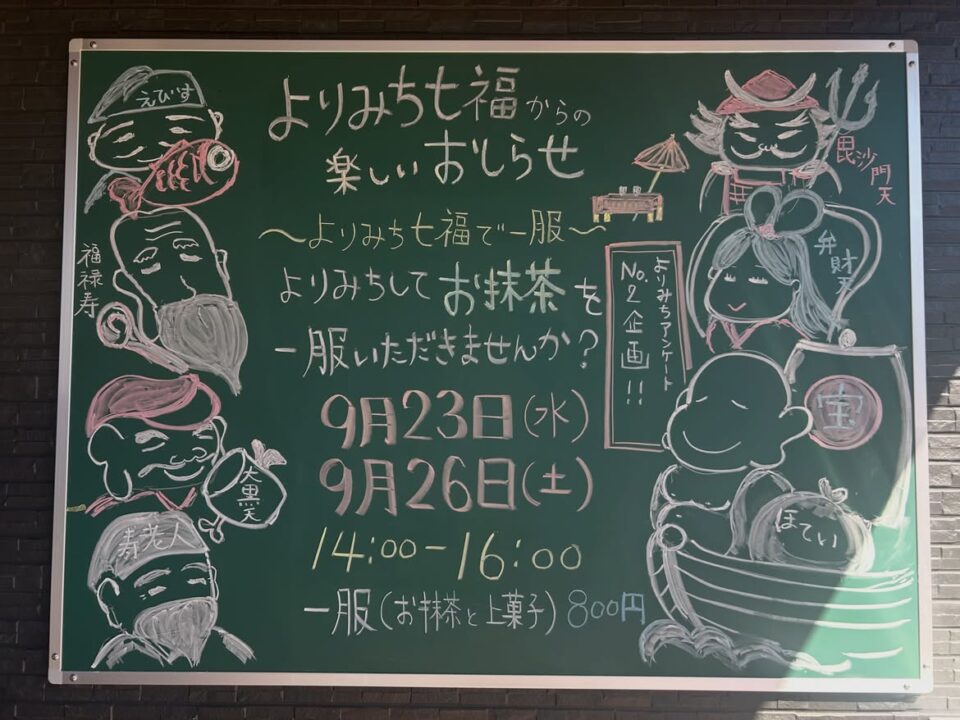 よりみち七福からの
楽しいおしらせ
～よりみち七福で一服～
よりみちしてお抹茶を
一服いただきませんか？
9月23日(水)
9月26日(土)
14:00-16:00
一服(お抹茶と上菓子)800円
よりみちアンケート
No.2企画!!
えびす
福禄寿
大黒天
寿老人
毘沙門天
弁財天
宝
ほてい